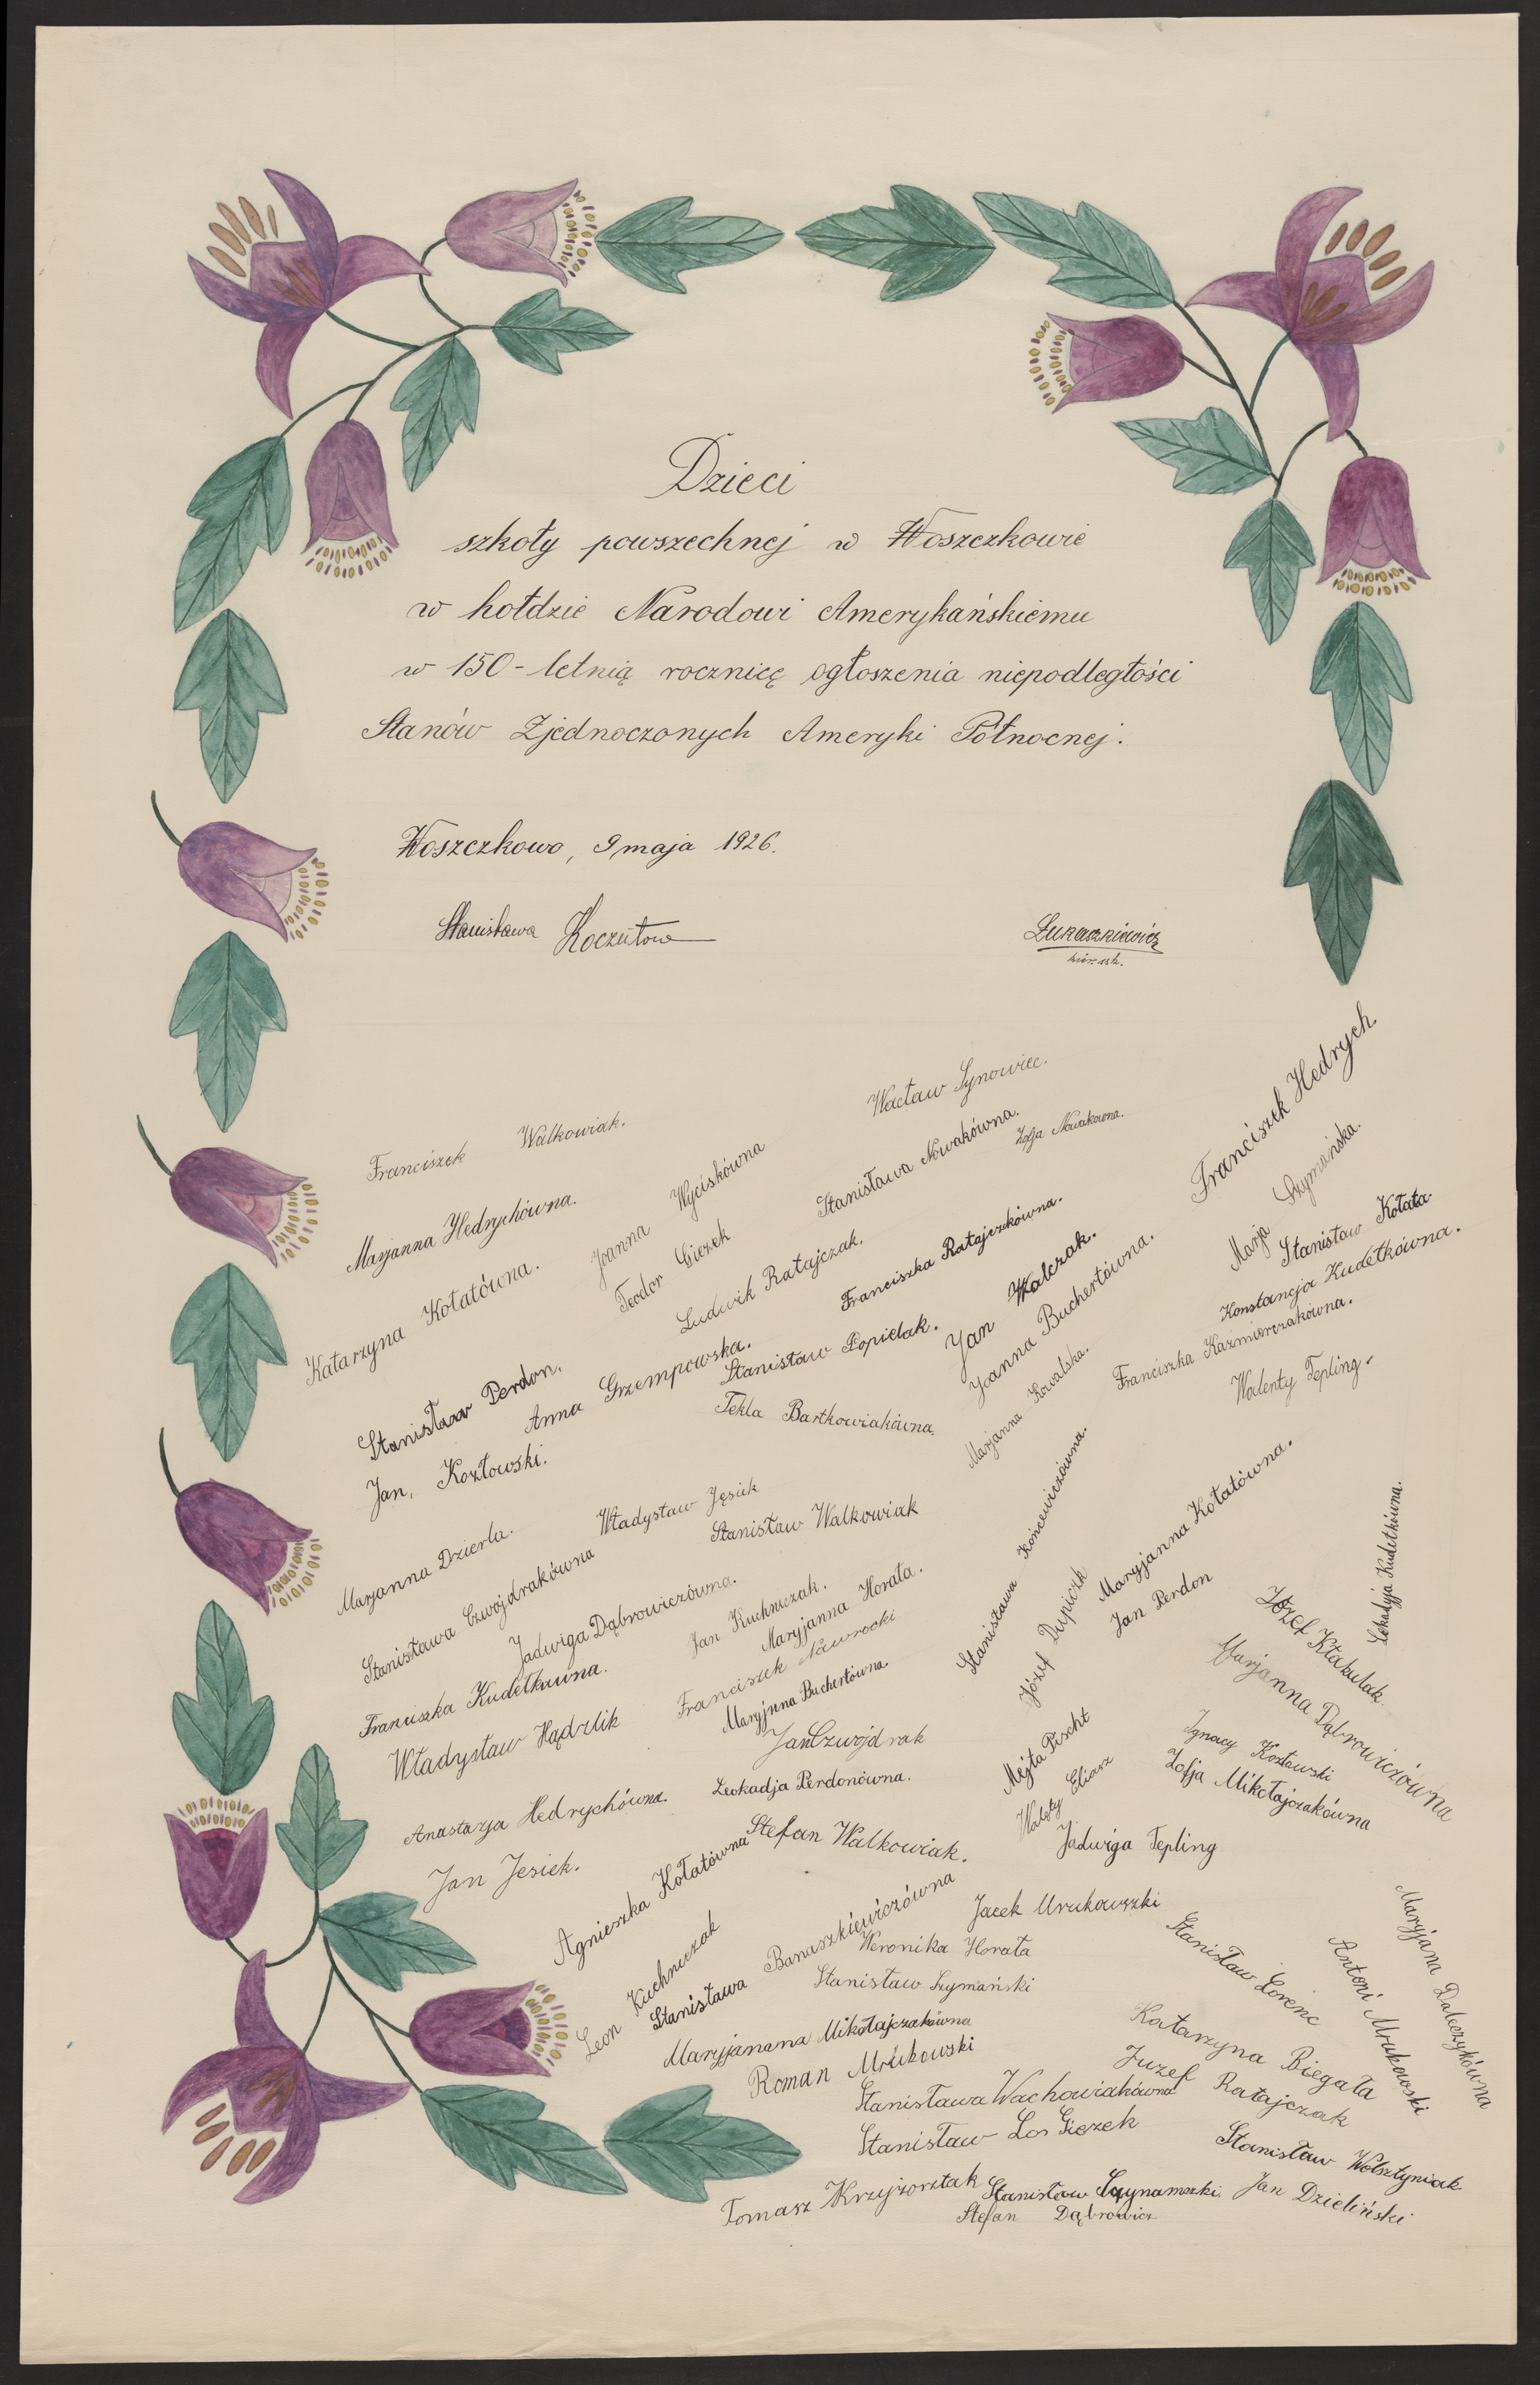 Dzieci
szkoły powszechnej w Woszczkowie
w hołdzie Narodowi Amerykańskiemu
w 150-letnią rocznicę ogłoszenia niepodległości
Stanów Zjednoczonych Ameryki Północnej.
Woszczkowo, 9 maja 1926.
Stanisława Koczutowa
Łukaszkiewicz
Wacław Synowiec.
Franciszek Walkowiak.
Stanisława Nowakówna.
Zofja Nowakowna.
Franciszek Hedrych.
Marja Szymańska.
Marjanna Hedrychówna.
Joanna Wyciskówna
Teodor Gierek
Ludwik Ratajczak.
Franciszka Ratajczkówna.
Stanisław Kołata.
Konstancja Kudełkówna.
Katarzyna Kołatówna.
Jan Walczak.
Joanna Buchertówna.
Franciszka Kazmierczakówna.
Stanisław Perdon.
Anna Grzempowska.
Stanisław Popielak.
Tekla Bartkowiakówna.
Marjanna Kowalska.
Walenty Tepling.
Jan, Kozłowski.
Marjanna Dzierla.
Władysław Jęsiek
Stanisław Walkowiak
Stanisława Koncewiczówna.
Maryjanna Kołatówna.
Lekadyja Kudełkówna.
Stanisława Czwojdrakówna
Jadwiga Dąbrowiczówna.
Jan Kuchniczak.
Maryjanna Horata.
Józef Dupiczk
Jan Perdon
Józef Ktakulak
Franciszka Kudełkówna.
Franciszek Nawrocki
Maryjnna Buchertówna.
Marjanna Dąbrowiczówna
Władysław Hądzlik
Jan Czwojdrak
Mejta Pischt
Ignacy Kozłowski
Zofja Mikołajczakówna
Anastazja Hedrychówna.
Leokadja Perdonówna.
Eliasz
Jadwiga Tepling
Jan Jesiek.
Agnieszka Kołatówna
Stefan Walkowiak.
Leon Kuchniczak
Stanisława Banaszkiewiczówna
Jacek Mrukowszki
Weronika Horata
Stanisław Szymański
Stanisław Lorenc
Antoni Mrukowski
Maryjana Daleczykówna
Maryjanana Mikołajczakówna
Roman Mrukowski
Katarzyna Biegała
Juzef Ratajczak
Stanisława Wachowiakówna
Stanisław Los Gierek
Stanisław Wolsztyniak
Tomasz Krzyżosztak
Stanisław
Jan Dzieliński
Stefan Dąbrowicz